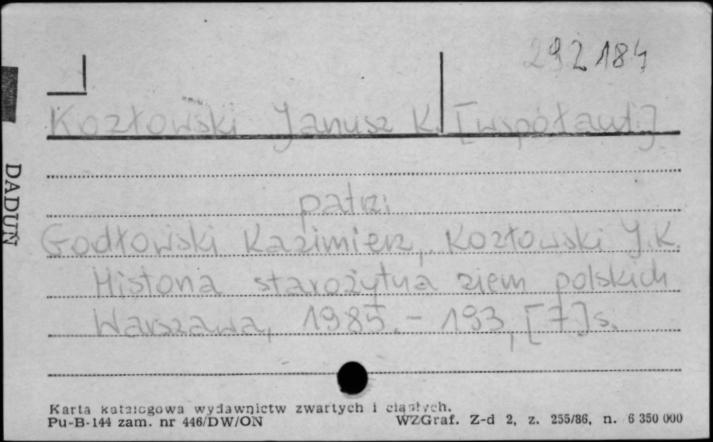 292184
Kozłowski Janusz K. [współaut.]
patrz:
Godłowski Kazimierz, Kozłowski J.K.
Historia starożytna ziem polskich
Warszawa, 1985. - 193, [7] s.
DADUN
Karta katalogowa wydawnictw zwartych i ciągłych.
Pu-B-144 zam. nr 446/DW/ON WZGraf. Z-d 2, z. 255/86, n. 6 350 000